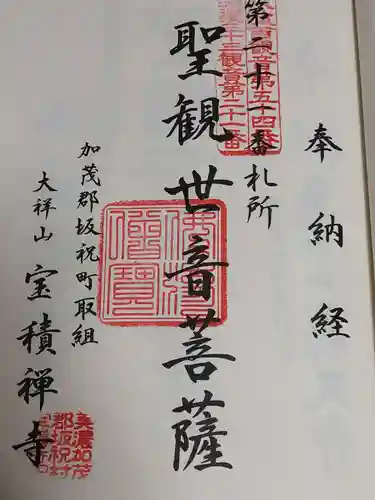 奉納経
第二十一番札所
聖観世音菩薩
加茂郡坂祝町取組
大祥山
宝積禅寺
佛法僧寶
美濃加茂
郡坂祝村